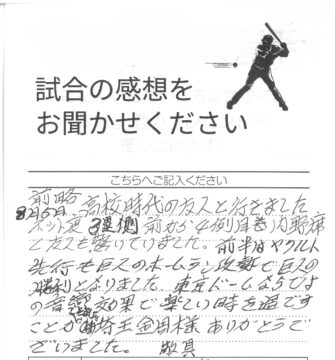 試合の感想を
お聞かせください
こちらへご記入ください
前略
8月5日、高校時代の友人と行きました
ネット裏 3塁側 前から4列目 内野席
と友人も驚いていました。前半はヤクルト
先行も巨人のホームラン攻勢で巨人の
勝利となりました 東京ドームならでは
の音響効果で楽しい時を過ごす
ことが
様 ありがとうご
ざいました。 敬具